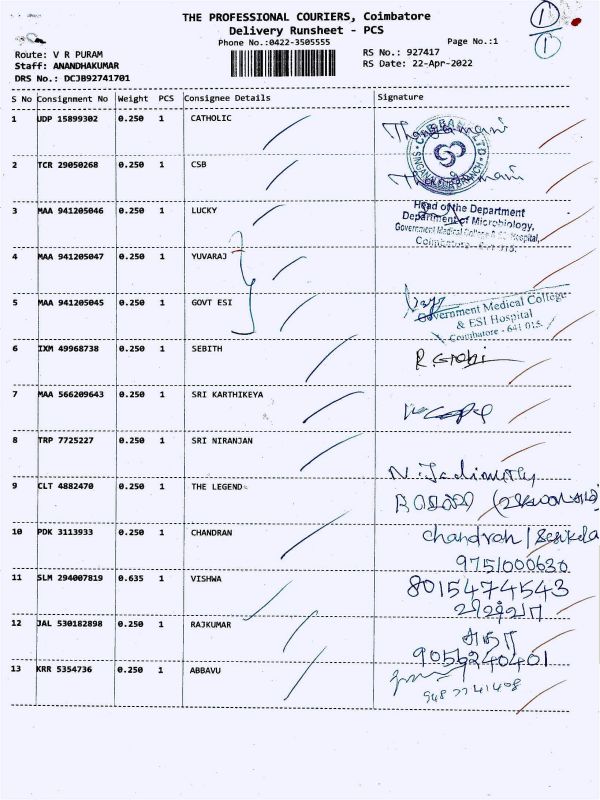 THE PROFESSIONAL COURIERS, Coimbatore
Delivery Runsheet - PCS
Phone No.:0422-3505555
Page No.:1
1
1
Route: V R PURAM
RS No.: 927417
Staff: ANANDHAKUMAR
RS Date: 22-Apr-2022
DRS No.: DCJB92741701
S No Consignment No Weight PCS Consignee Details Signature
1 UDP 15899302 0.250 1 CATHOLIC
2 TCR 29050268 0.250 1 CSB
3 MAA 941205046 0.250 1 LUCKY
Head of the Department
Department of Microbiology,
Government Medical College & ESI Hospital,
Coimbatore - 641 015.
4 MAA 941205047 0.250 1 YUVARAJ
5 MAA 941205045 0.250 1 GOVT ESI
Government Medical College
& ESI Hospital
Coimbatore - 641 015.
6 IXM 49968738 0.250 1 SEBITH
7 MAA 566209643 0.250 1 SRI KARTHIKEYA
8 TRP 7725227 0.250 1 SRI NIRANJAN
9 CLT 4882470 0.250 1 THE LEGEND
10 PDK 3113933 0.250 1 CHANDRAN chandran
9751000630
11 SLM 294007819 0.635 1 VISHWA 8015474543
12 JAL 530182898 0.250 1 RAJKUMAR
9056240401
13 KRR 5354736 0.250 1 ABBAVU